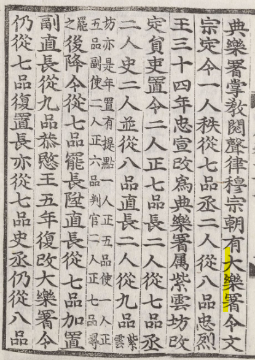 典樂署掌敎閱聲律穆宗朝有大樂署令文
宗定令一人秩從七品丞二人從八品忠烈
王三十四年忠宣改爲典樂署屬紫雲坊改
定員吏置令二人正七品長二人從七品丞
二人史二人並從八品直長二人從九品紫雲
坊亦是年置有提點一人正五品使一人正
五品副使二人正六品判官二人正七品尋
罷之後降令從七品罷長陞直長從七品加置
副直長從九品恭愍王五年復改大樂署令
仍從七品復置長亦從七品史丞仍從八品